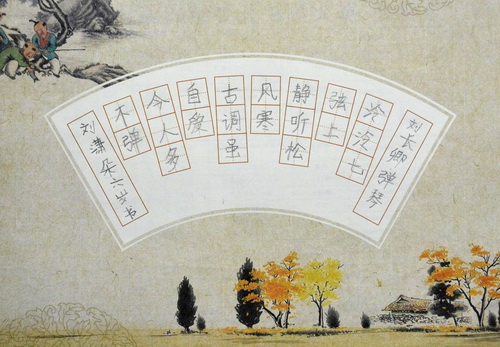 刘长卿弹琴
泠泠七
弦上
静听松
风寒
古调虽
自爱
今人多
不弹
刘潇朵六岁书